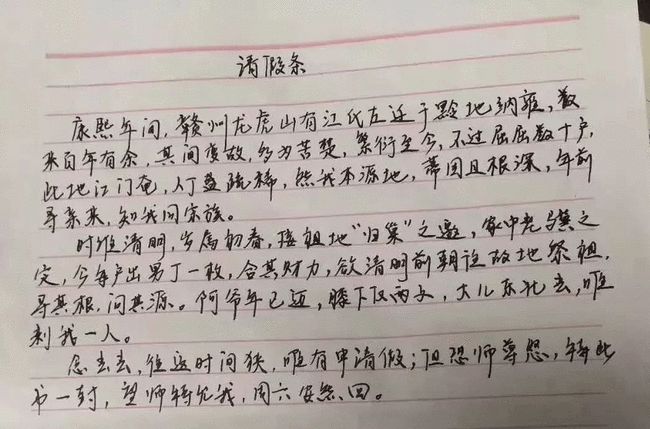 请假条
康熙年间,赣州龙虎山有江氏左迁于黔地纳雍,数
来百年有余,其间变故,多为苦楚,繁衍至今,不过屈屈数十户,
此地江门奄,人丁益疏稀,然我本源地,蒂固且根深,年前
寻亲来,知我同宗族。
时维清明,岁属初春,接祖地“归巢”之邀,家中老骥之
定,今每户出男丁一枚,合其财力,欲清明前朝诣故地祭祖,
寻其根,问其源。阿爷年已迈,膝下仅两子,大儿东北去,唯
剩我一人。
念去去,往返时间狭,唯有申请假;但恐师尊怒,特此
书一封,望师特允我,周六安然回。